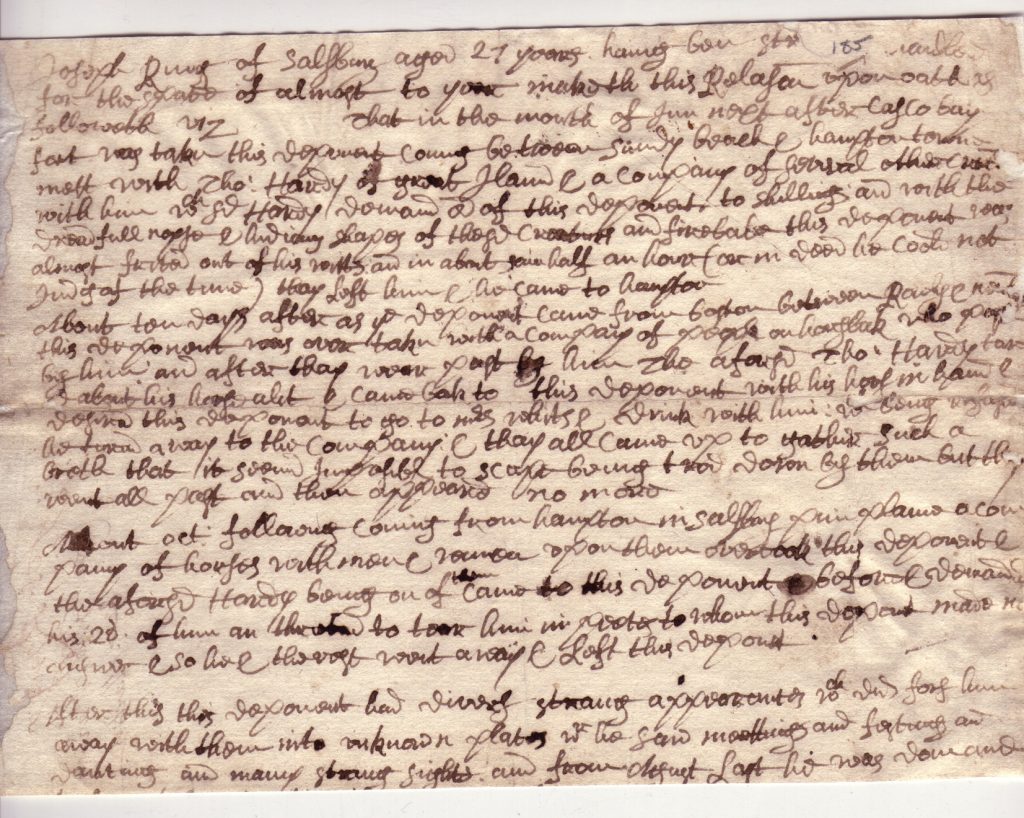 Joseph Ring of Salsbury aged 27 years having ben str 185
for the space of almost to year maketh this Relation upon oath as
followeth viz That in the month of Jun next after Casco bay
fort was takn this deponent Coming between Sandy beach & hampton towne
mett with Tho: Hardy of great Iland & a Company of severall other
with him wch sd Hardy demanded of this deponent to shillings and with the
dreadfull noyse & hidious shapes of thes Creatures and firebale this deponent was
almost frited out of his witts and in about half an hour (or in deed he Could not
Judg of the time) thay Left him & he Came to hampton
About ten days after as ye deponent Came from boston between Rowly &
this deponent was over takn with a Company of people on horsback who past
by him and after thay wear past by him The aforsd Tho: Hardy turned
about his horse alit & Came bak to this deponent with his hors in hand &
desired this deponent to go to mrs whits & drink with him: wch being
he turnd away to the Company & thay all Came up to gather such a
breth that it seemd Imposible to scape being trod down by them but they
went all past and then appeared no more
About oct following Coming from hampton in Salsbury pine plaine a Com
pany of horses with men & women upon them overtook this deponent &
the aforsd Hardy being on of them Came to this deponent before & demanded
his 2s of him an thretnd to tear him in peces to whom this deponent made no
answer & so he & the rest went away & Left this deponent
After this this deponent had divers strang appearances wch did fors him
away with them into unknown places wch he saw meettings and festings and
dancing and many strang sights and from Agust Last he was